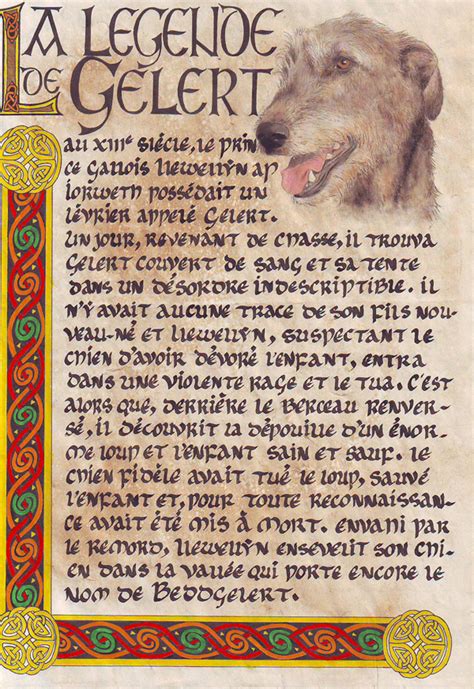 La Legende
de Gelert
Au XIIIe siècle, le prin
ce gallois Llewellyn ap
Iorweth possédait un
lévrier appelé Gelert.
Un jour, revenant de chasse, il trouva
Gelert couvert de sang et sa tente
dans un désordre indescriptible. Il
n'y avait aucune trace de son fils nou-
veau-né et Llewellyn, suspectant le
chien d'avoir dévoré l'enfant, entra
dans une violente rage et le tua. C'est
alors que, derrière le berceau renver-
sé, il découvrit la dépouille d'un énor-
me loup et l'enfant sain et sauf. Le
chien fidèle avait tué le loup, sauvé
l'enfant et, pour toute reconnaissan-
ce avait été mis à mort. Envahi par
le remord, Llewellyn ensevelit son chi-
en dans la vallée qui porte encore le
nom de Beddgelert.